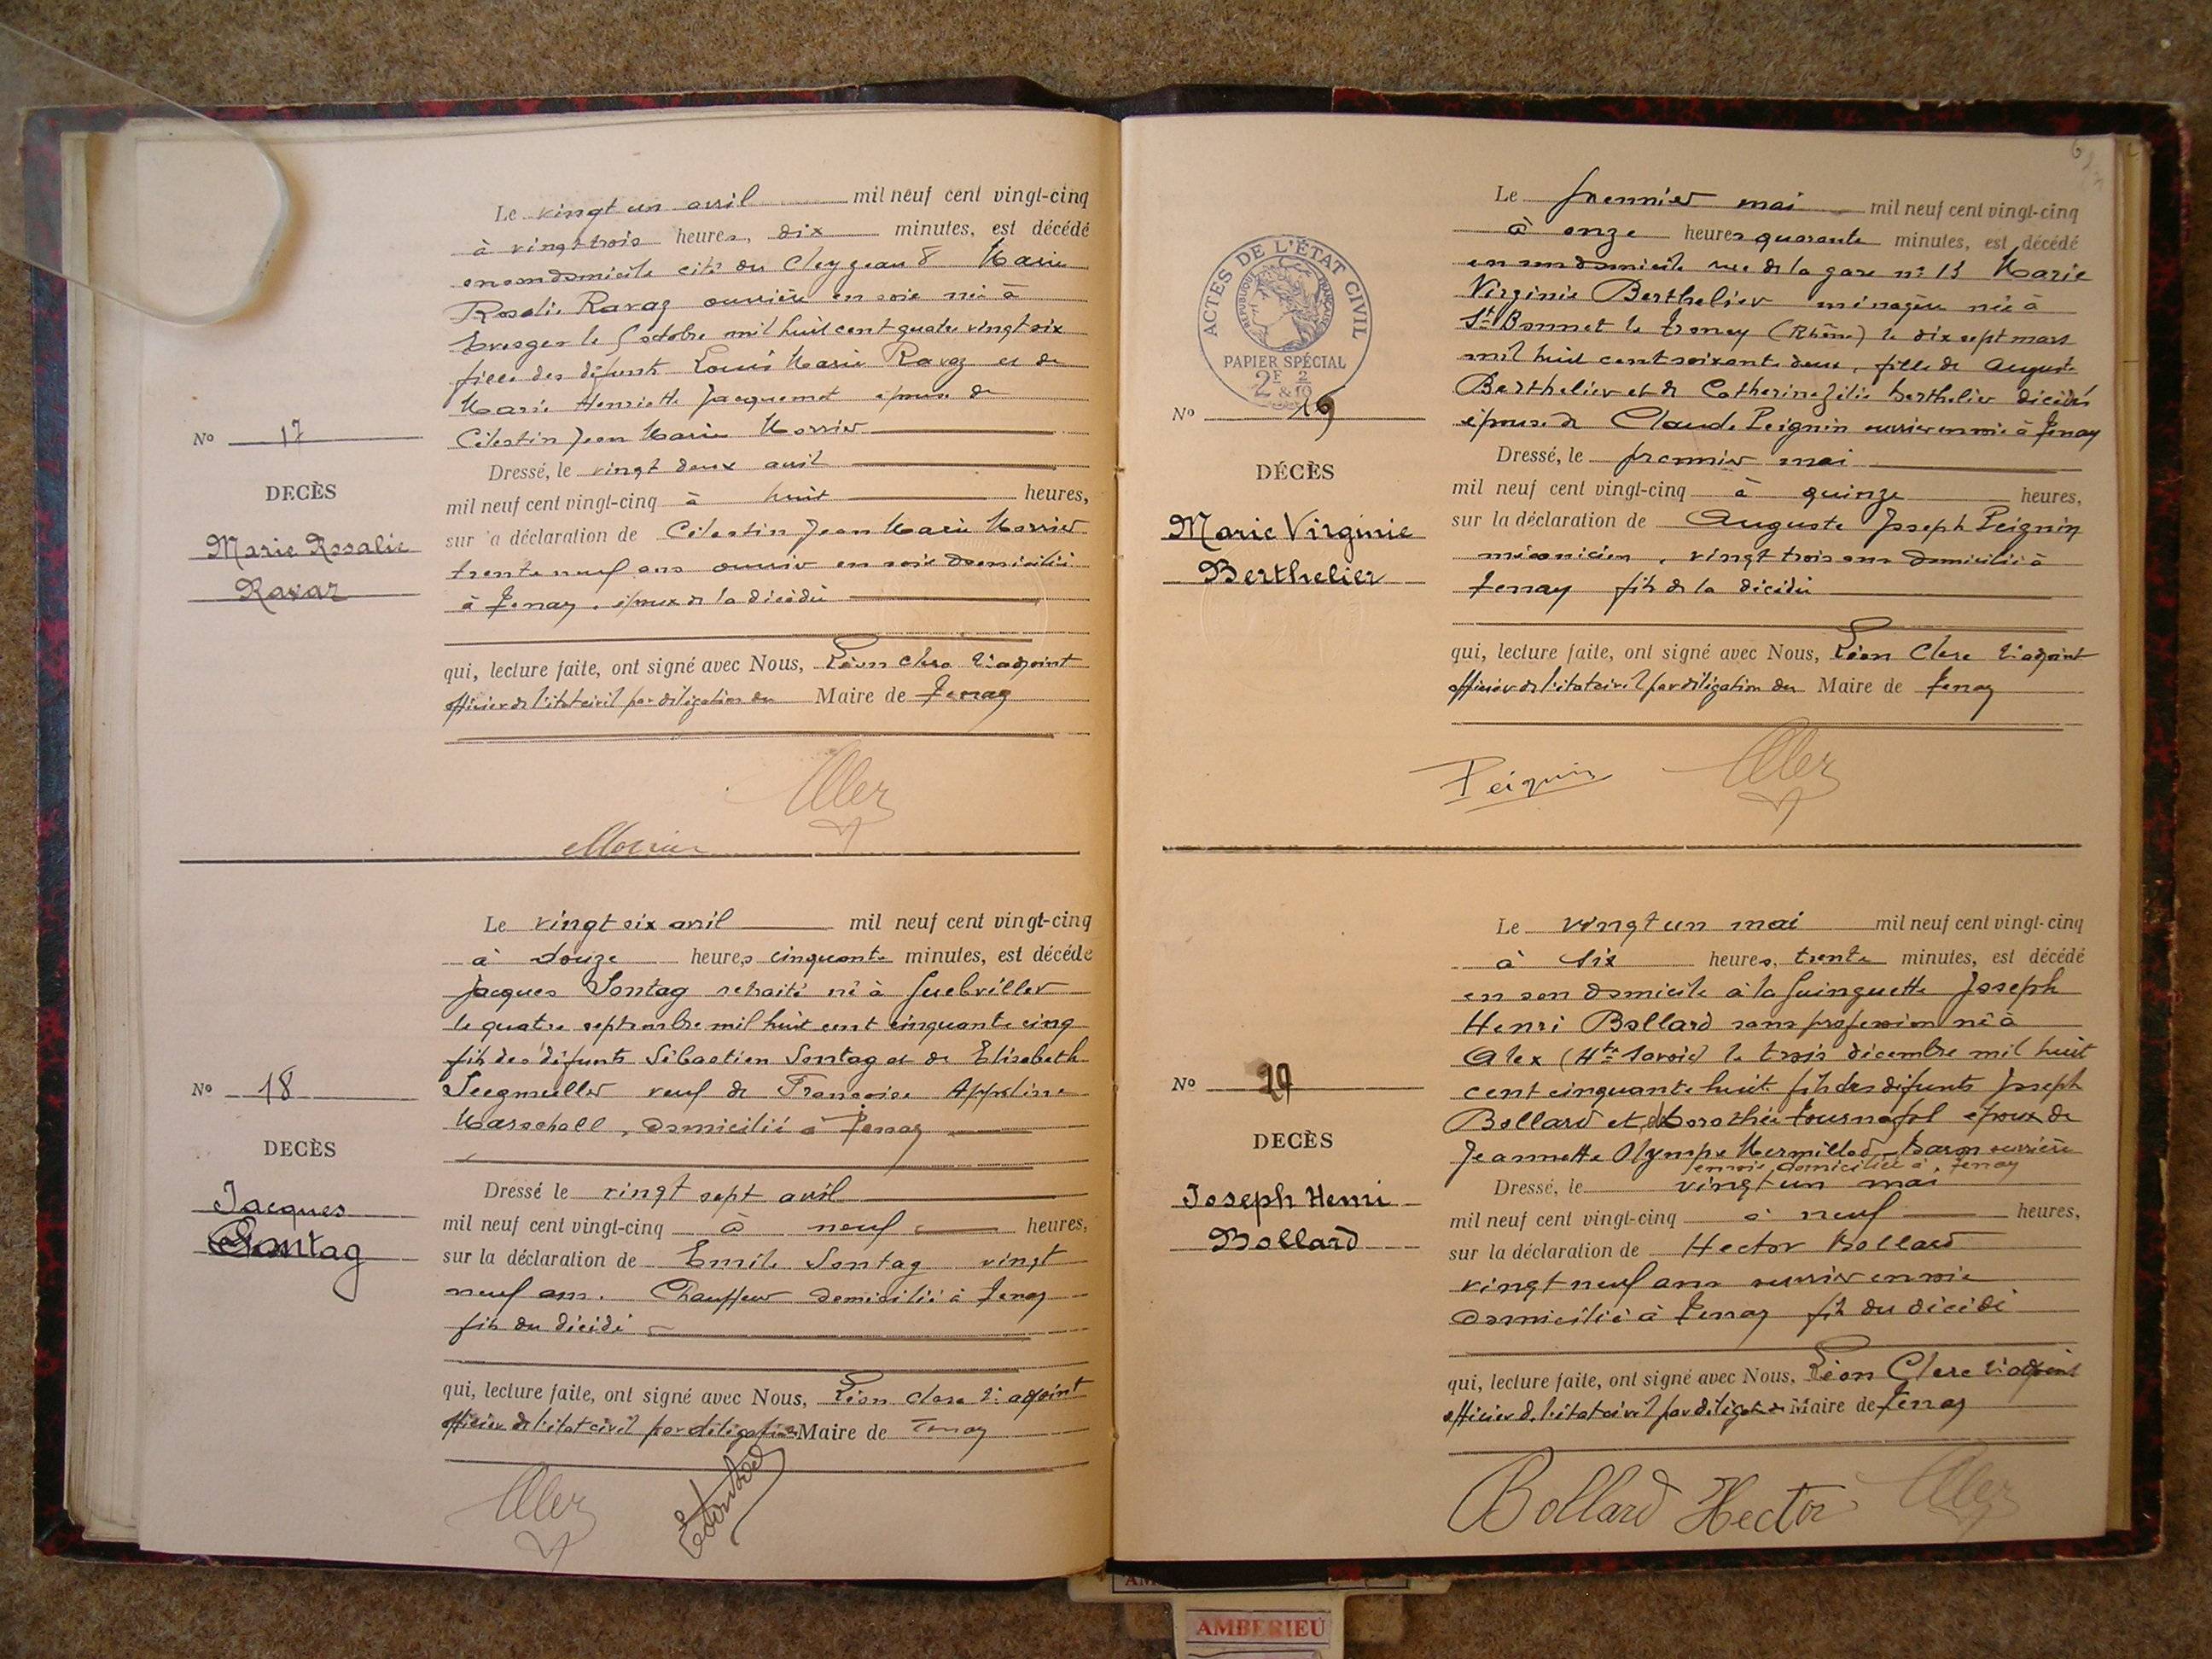 Le vingt un avril mil neuf cent vingt-cinq
à vingt trois heures, dix minutes, est décédé
en son domicile cité du Cleyzeau 8 Marie
Rosalie Ravaz ouvrière en soie née à
Evosges le 5 octobre mil huit cent quatre vingt six
fille des défunts Louis Marie Ravaz et de
Marie Henriette Jacquemet épouse de
Célestin Jean Marie Morrier
No 17
DECÈS
Marie Rosalie
Ravaz
Dressé, le vingt deux avril
mil neuf cent vingt-cinq à huit heures,
sur a déclaration de Célestin Jean Marie Morrier
trente neuf ans ouvrier en soie domicilié
à Tenay, époux de la décédée
qui, lecture faite, ont signé avec Nous, Léon Clerc 2e adjoint
officier de l'état civil par délégation du Maire de Tenay
Le vingt six avril mil neuf cent vingt-cinq
à douze heures cinquante minutes, est décédé
Jacques Sontag retraité né à Guebviller
le quatre septembre mil huit cent cinquante cinq
fils des défunts Sébastien Sontag et de Elisabeth
Seegmuller veuf de Françoise Appoline
Marschall, domicilié à Tenay
No 18
DECÈS
Jacques
Sontag
Dressé le vingt sept avril
mil neuf cent vingt-cinq à neuf heures,
sur la déclaration de Emile Sontag vingt
neuf ans. Chauffeur domicilié à Tenay
fils du décédé
qui, lecture faite, ont signé avec Nous, Léon Clerc 2e adjoint
officier de l'état civil par délégation Maire de Tenay
Le premier mai mil neuf cent vingt-cinq
à onze heures quarante minutes, est décédé
en son domicile rue de la gare no 13 Marie
Virginie Berthelier ménagère née à
St Bonnet le Troncy (Rhône) le dix sept mars
mil huit cent soixante deux, fille de Auguste
Berthelier et de Catherine Zélie Berthelier décédés
épouse de Claude Peignin ouvrier en soie à Tenay
ACTES DE L'ÉTAT CIVIL
RÉPUBLIQUE FRANÇAISE
PAPIER SPÉCIAL
2F & 2/10
No 19
DÉCÈS
Marie Virginie
Berthelier
Dressé, le premier mai
mil neuf cent vingt-cinq à quinze heures,
sur la déclaration de Auguste Joseph Peignin
mécanicien, vingt trois ans domicilié à
Tenay fils de la décédée
qui, lecture faite, ont signé avec Nous, Léon Clerc 2e adjoint
officier de l'état civil par délégation du Maire de Tenay
Peignin
Le vingt un mai mil neuf cent vingt-cinq
à six heures, trente minutes, est décédé
en son domicile à la Guinguette Joseph
Henri Bollard sans profession né à
Alex (Hte Savoie) le trois décembre mil huit
cent cinquante huit fils des défunts Joseph
Bollard et de Dorothée Tournafol époux de
Jeannette Olympe Mermillod-Baron ouvrière
en soie domiciliée à Tenay
No
DECÈS
Joseph Henri
Bollard
Dressé, le vingt un mai
mil neuf cent vingt-cinq à neuf heures,
sur la déclaration de Hector Bollard
vingt neuf ans ouvrier en soie
domicilié à Tenay fils du décédé
qui, lecture faite, ont signé avec Nous, Léon Clerc 2e adjoint
officier de l'état civil par délégat. du Maire de Tenay
Bollard Hector
AMBERIEU